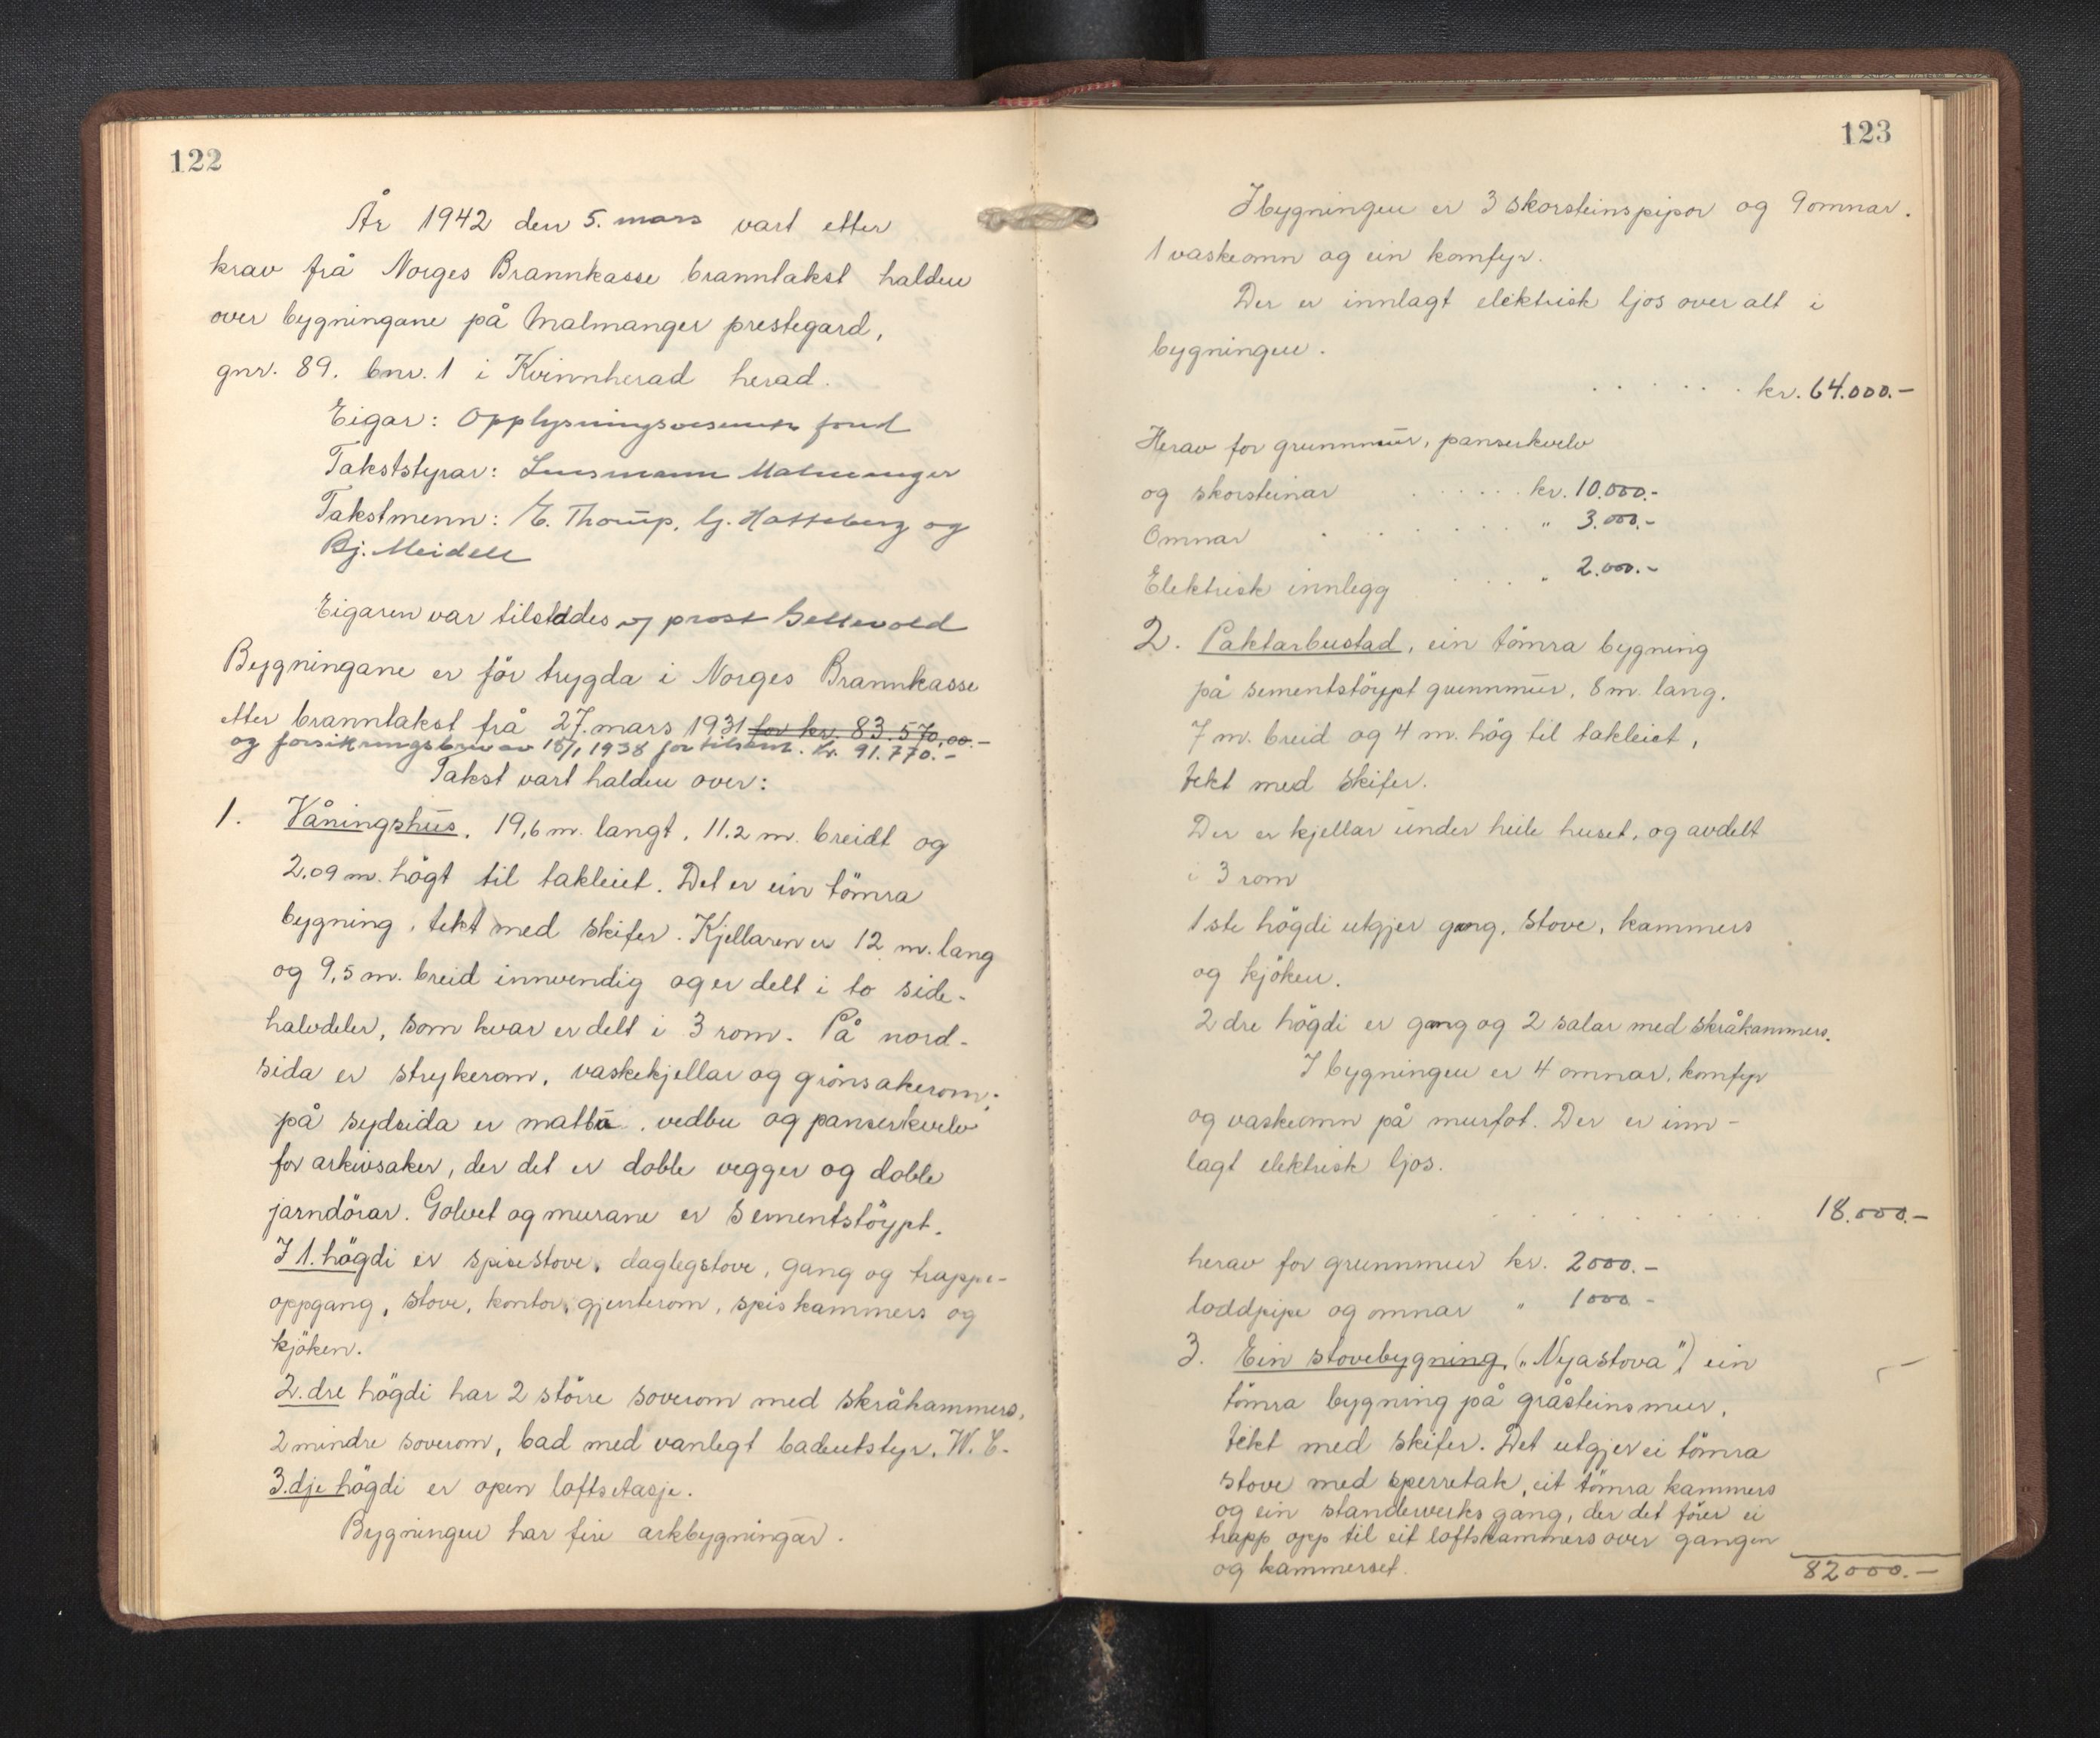 122
År 1942 den 5. mars vart etter
krav frå Norges Brannkasse branntakst halden
over bygningane på Malmanger prestegard,
gnr. 89. bnr. 1 i Kvinnherad herad.
Eigar: Opplysningsvesenets fond
Takststyrar: Lensmann Malmanger
Takstmenn: E. Thorup, G. Hatteberg og
Bj. Meidell
Eigaren var tilstades og prost Gellevold
Bygningane er för trygda i Norges Brannkasse
etter branntakst frå 27. mars 1931 for kr. 83.570,00.-
og forsikringsbrev av 15/1 1938 for tilsaml. Kr. 91.770.-
Takst vart halden over:
1. Våningshus, 19,6 m. langt, 11.2 m. breidt og
2.09 m. högt til takleiet. Det er ein tömra
bygning, tekt med skifer. Kjellaren er 12 m. lang
og 9,5 m. breid innvendig og er delt i to side-
halvdeler, som kvar er delt i 3 rom. På nord-
sida er strykerom, vaskekjellar og grönsakerom;
på sydsida er matbu, vedbu og panserkvelv
for arkivsaker, der det er doble vegger og doble
jarndörar. Golvet og murane er sementstöypt.
I 1. högdi er spisestove, daglegstove, gang og trappe-
oppgang, stove, kontor, gjenterom, spiskammers og
kjöken.
2.dre högdi har 2 större soverom med skråkammers,
2 mindre soverom, bad med vanlegt badeutstyr, W. C.
3.dje högdi er open loftsetasje.
Bygningen har fire arkbygningar.
123
I bygningen er 3 skorsteinspipor og 9 omnar.
1 vaskeomn og ein komfyr.
Der er innlagt elektrisk ljos over alt i
bygningen.
. . . . . . kr. 64.000.-
Herav for grunnmur, panserkvelv
og skorsteinar . . . . . . kr. 10.000.-
Omnar . . . . . . " 3.000.-
Elektrisk innlegg . . . " 2.000.-
2. Paktarbustad, ein tömra bygning
på sementstöypt grunnmur, 8 m. lang,
7 m. breid og 4 m. hög til takleiet,
tekt med skifer.
Der er kjellar under heile huset, og avdelt
i 3 rom
1ste högdi utgjer gang, stove, kammers
og kjöken.
2dre högdi er gang og 2 salar med skråkammers.
I bygningen er 4 omnar, komfyr
og vaskeomn på murfot. Der er inn-
lagt elektrisk ljos.
. . . . . . . 18.000.-
herav for grunnmur kr. 2000.-
loddpipe og omnar " 1000 -
3. Ein stovebygning, („Nyastova") ein
tömra bygning på gråsteinsmur,
tekt med skifer. Det utgjer ei tömra
stove med sperretak, eit tömra kammers
og ein standerverks gang, der det förer ei
trapp opp til eit loftskammers over gangen
og kammerset.
82000.-